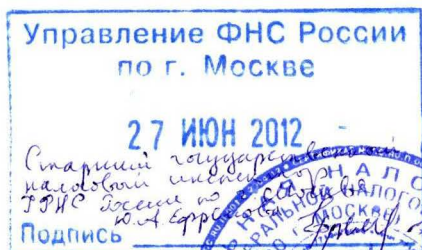 Управление ФНС России
по г. Москве
27 ИЮН 2012
Старший государственный
налоговый инспектор
УФНС России по г. Москве
Ю.А.Ефр
Подпись
МОСКВЕ